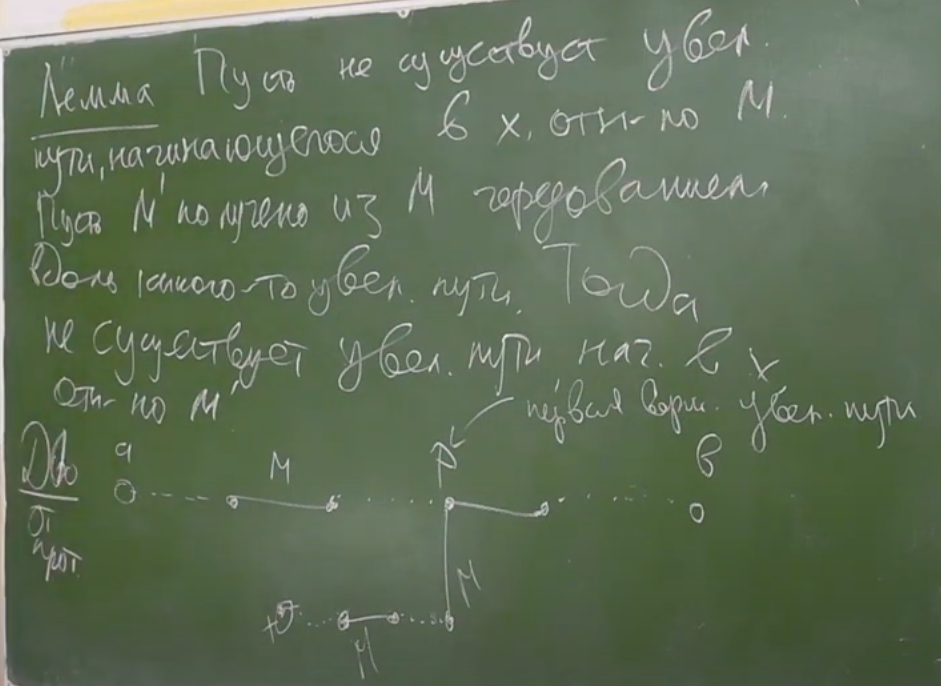 Лемма Пусть не существует увел.
пути, начинающегося в x, отн-но M.
Пусть M' получено из M чередованием
вдоль какого-то увел. пути. Тогда
не существует увел. пути нач. в x
отн-но M'
первая верш. увел. пути
Д-во
От
прот.
a
M
P
b
M
M